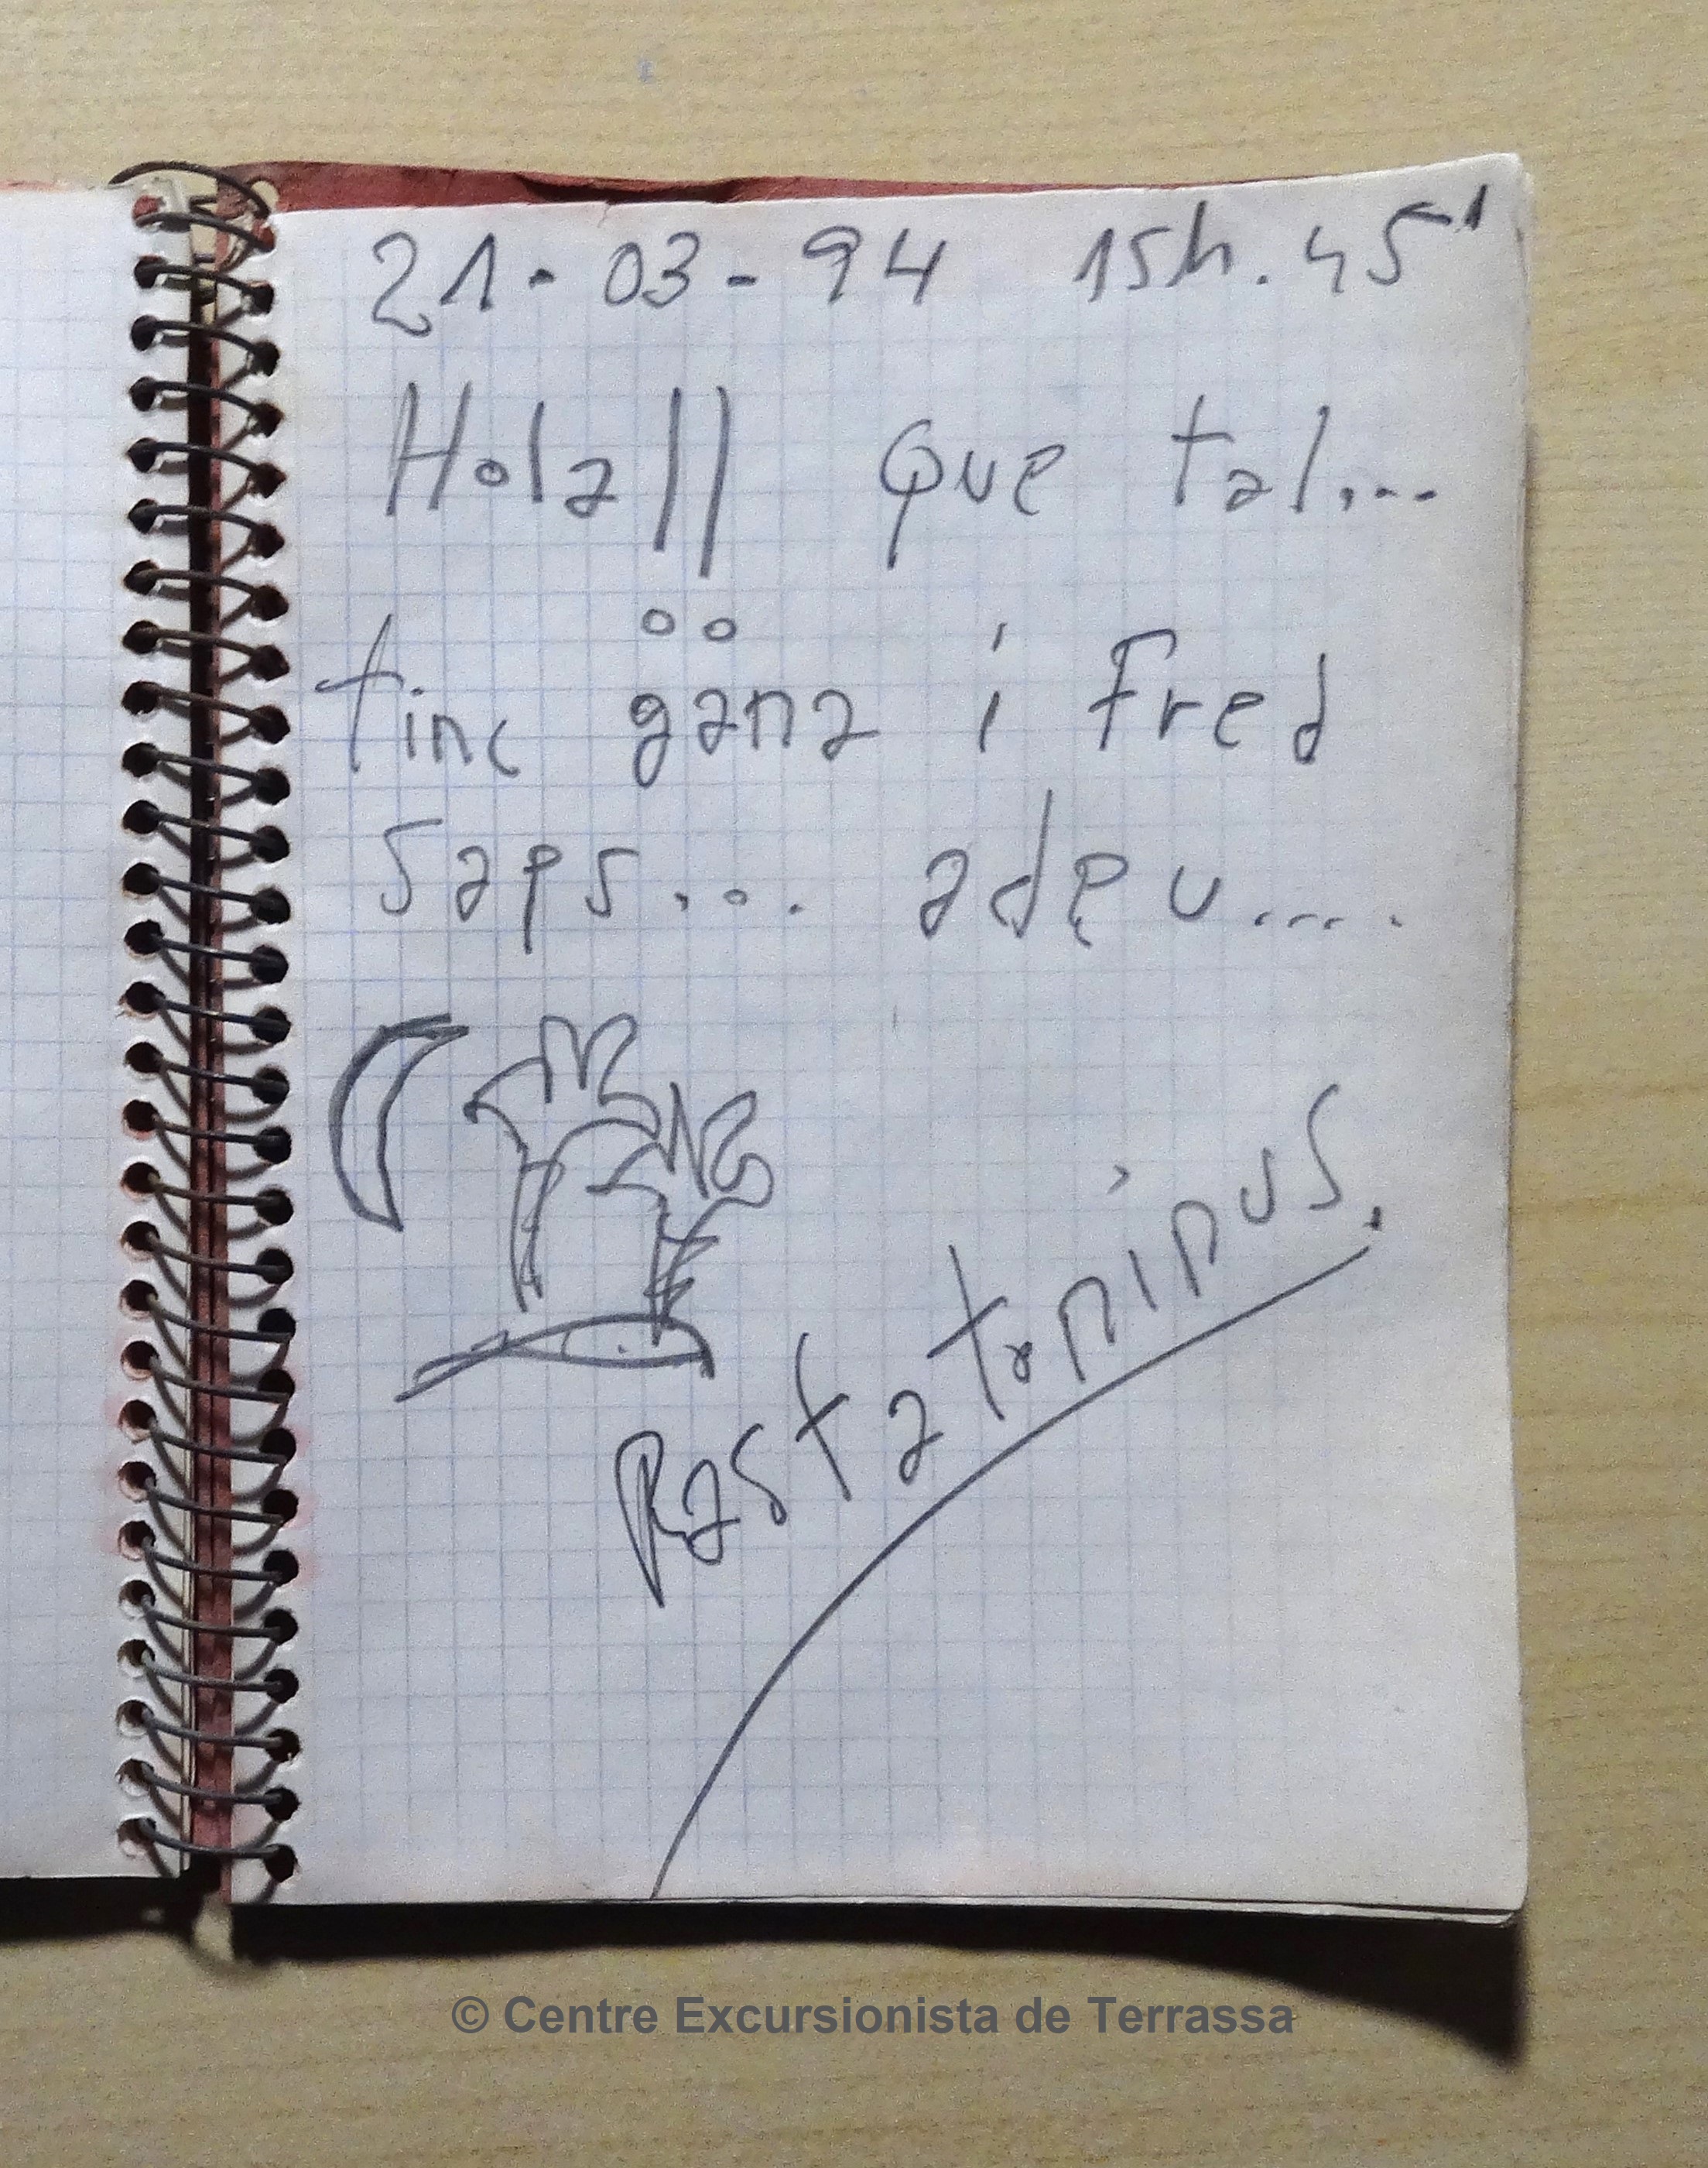 21-03-94 15h.45'
Hola!! Que tal...
tinc gana i Fred
saps... adeu.....
© Centre Excursionista de Terrassa